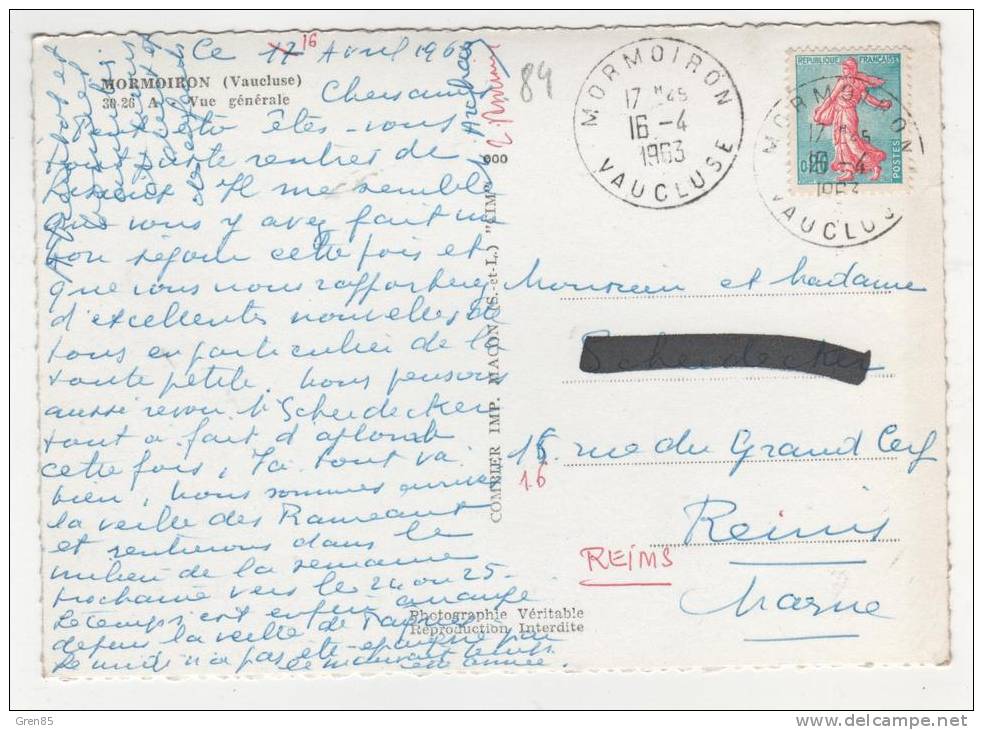 Ce 17 16 Avril 1963
MORMOIRON (Vaucluse)
30-26 A - Vue générale
Chers amis
êtes-vous
rentrés de
Il me semble
que vous y avez fait un
bon séjour cette fois et
que vous nous rapportez
d'excellentes nouvelles de
tous en particulier de la
toute petite. Nous pensons
aussi revoir Mr Scheidecker
tout à fait d'aplomb
cette fois, Ici tout va
bien, nous sommes arrivés
la veille des Rameaux
et rentrerons dans le
milieu de la semaine
prochaine vers le 24 ou 25-
Le temps est enfin arrangé
depuis la veille de Pâques
le midi n'a pas été épargné
le mauvais temps
cette année.
84
MORMOIRON
17 H 45
16 -4
1963
VAUCLUSE
RÉPUBLIQUE FRANÇAISE
POSTES
MORMOIRON
17 H 45
16 -4
1963
VAUCLUSE
000
COMBIER IMP. MACON (S.-et-L.) "CIM"
Monsieur et Madame
Scheidecker
15 rue du Grand Cerf
16
Reims
REIMS
Marne
Photographie Véritable
Reproduction Interdite
Gren85
www.delcampe.net